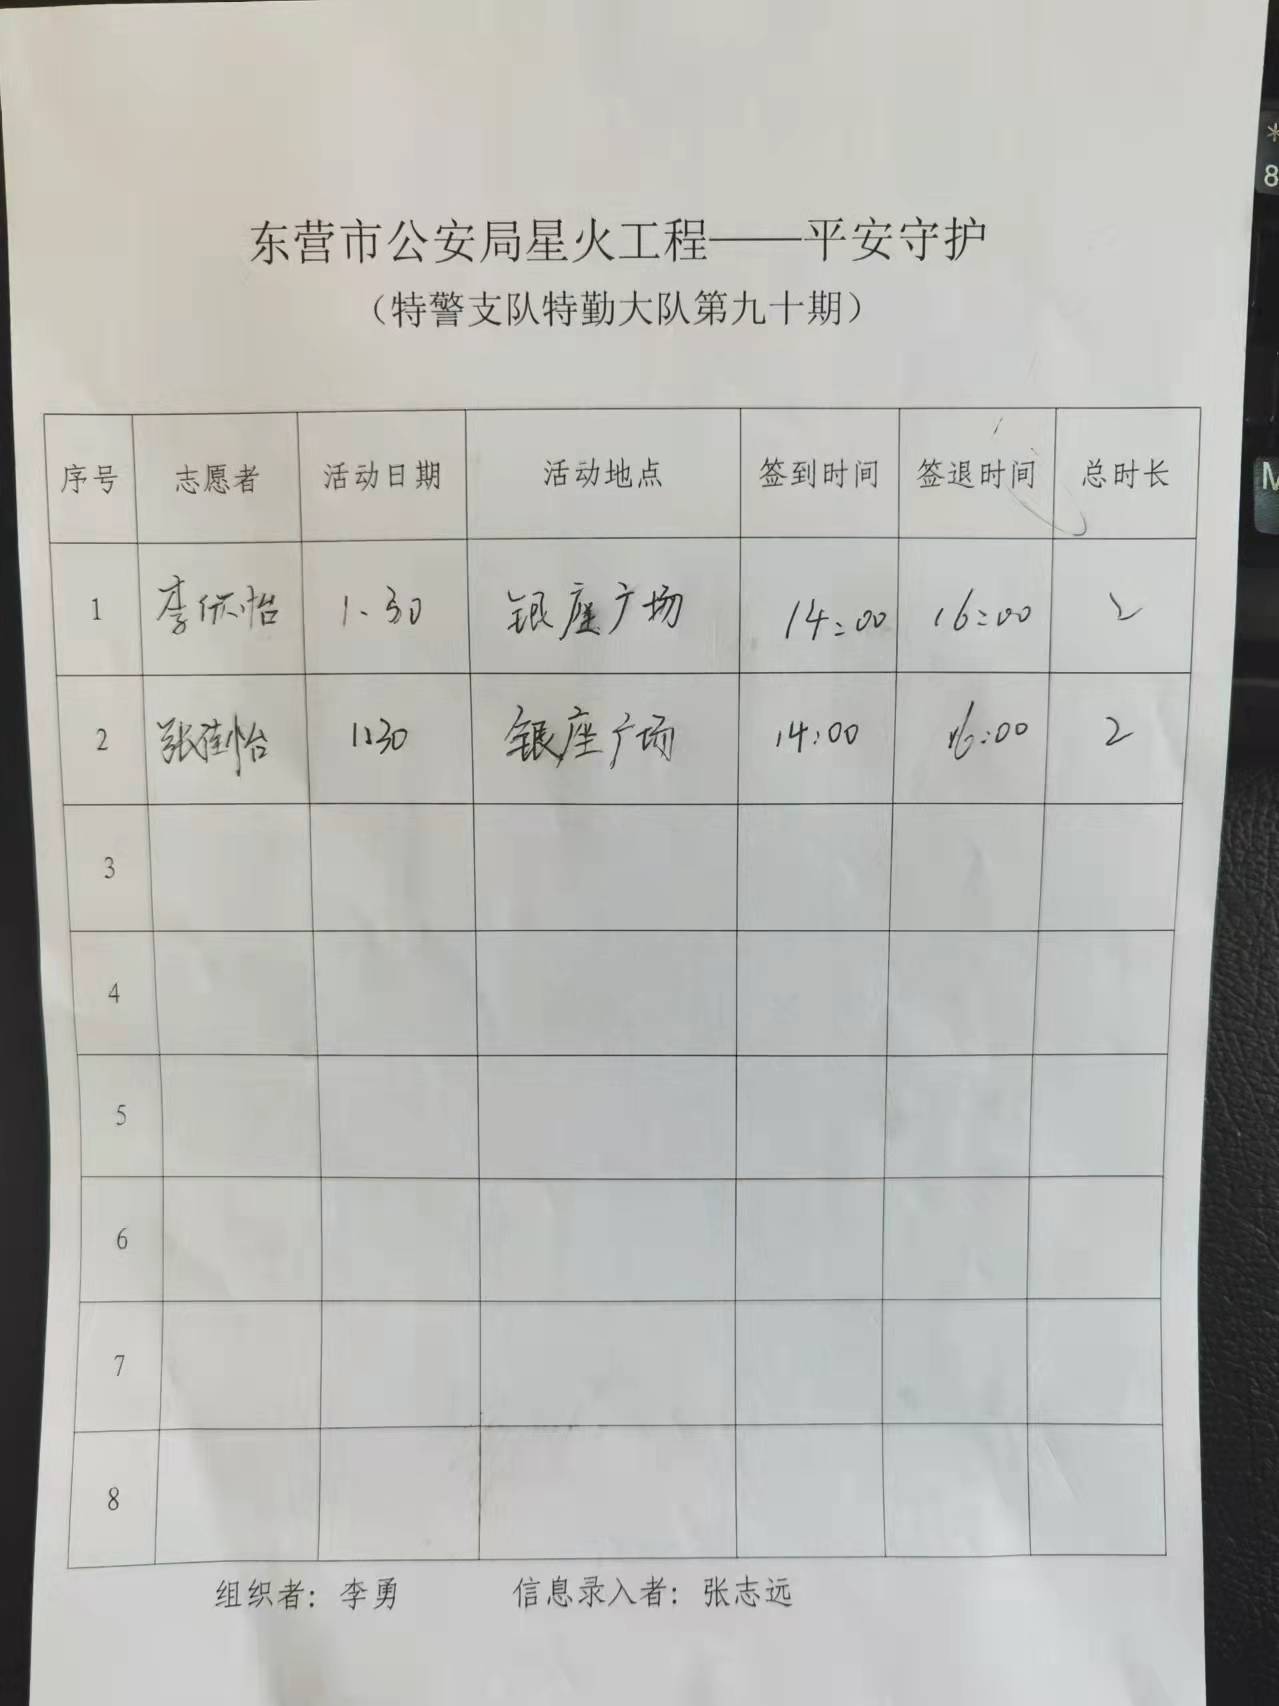 东营市公安局星火工程——平安守护
（特警支队特勤大队第九十期）
序号 志愿者 活动日期 活动地点 签到时间 签退时间 总时长
1 李 怡 1.30 银座广场 14:00 16:00 2
2 张佳怡 1.30 银座广场 14:00 16:00 2
3
4
5
6
7
8
组织者：李勇 信息录入者：张志远
*
8
M